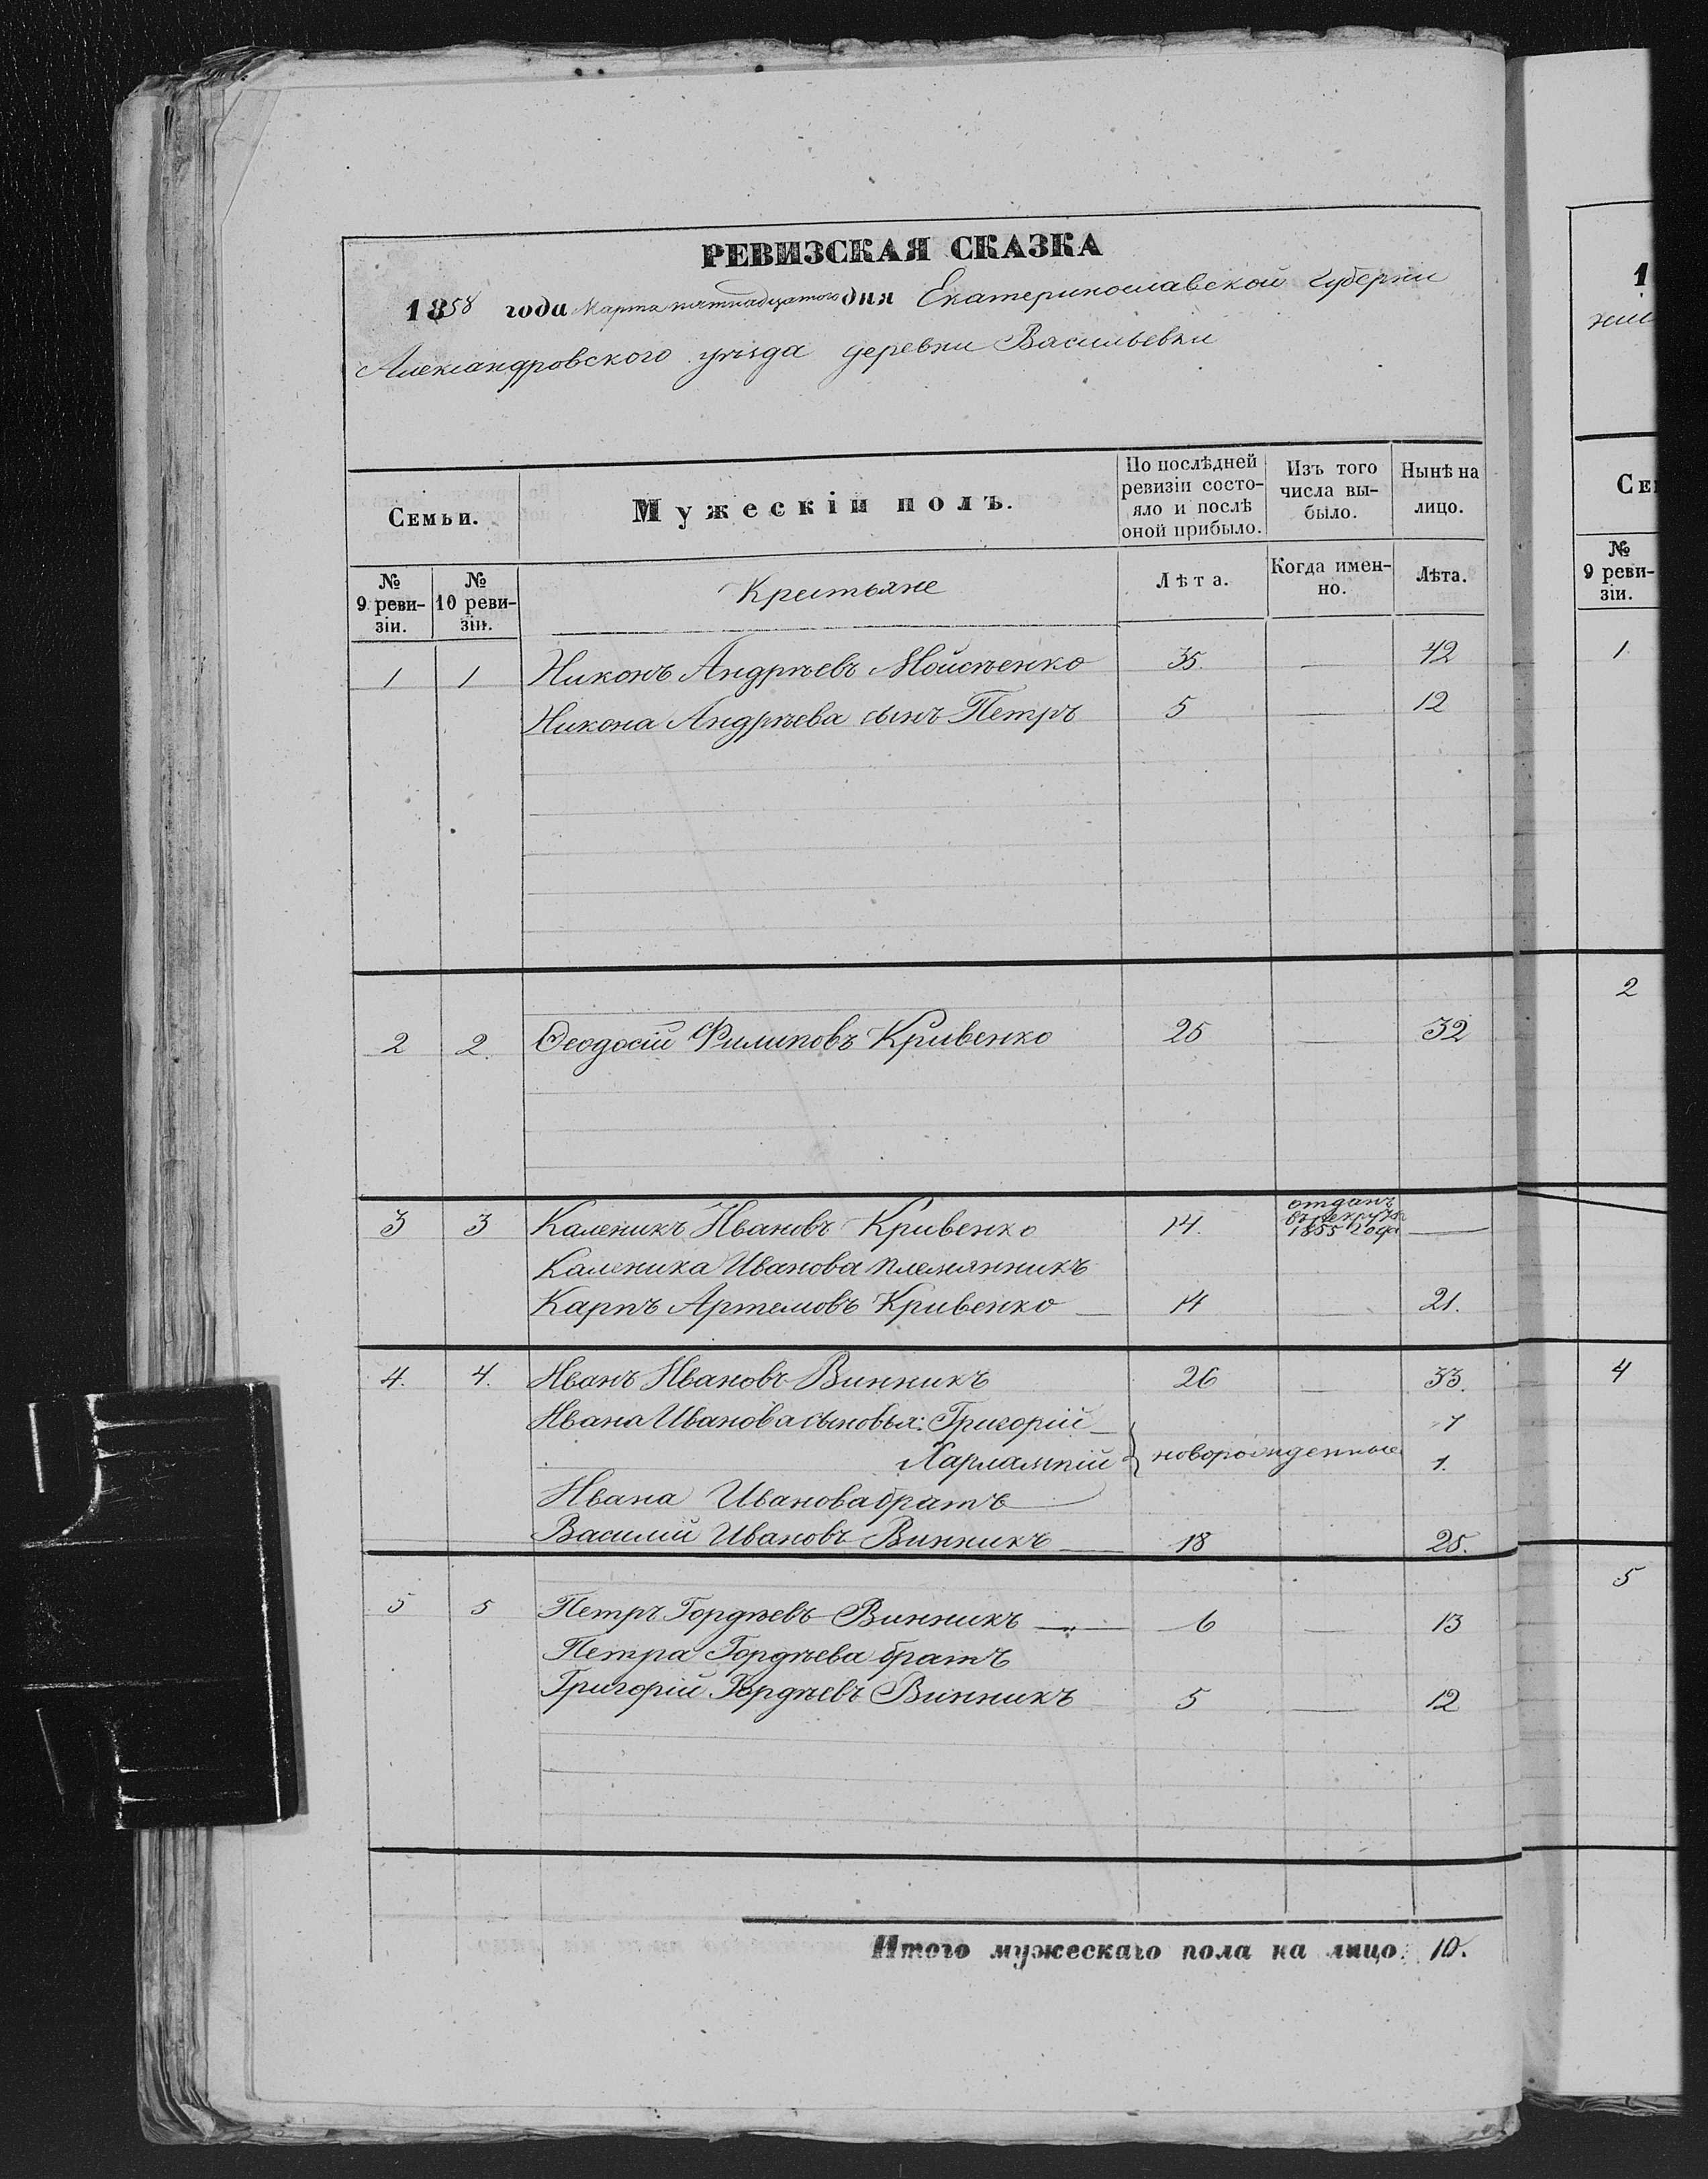 РЕВИЗСКАЯ СКАЗКА
1858 года Марта пятнадцатого дня Екатеринославской Губернии
Александровского уѣзда деревни Васильевки
Семьи.
Мужескій полъ.
По послѣдней ревизіи состояло и послѣ оной прибыло.
Изъ того числа выбыло.
Нынѣ на лицо.
№ 9 ревизіи.
№ 10 ревизіи.
Крестьяне
Лѣта.
Когда именно.
Лѣта.
1 1 Никонъ Андрѣевъ Мойсѣенко 35. — 42
Никона Андрѣева сынъ Петръ 5 — 12
2 2. Ѳеодосій Филиповъ Кривенко 25 — 32
3 3 Каленикъ Ивановъ Кривенко 14. отданъ въ рекруты 1855 года —
Каленика Иванова племянникъ
Карпъ Артемовъ Кривенко — 14 — 21.
4. 4. Иванъ Ивановъ Винникъ 26 — 33.
Ивана Иванова сыновья: Григорій
Харлампій } новорожденные 1.
Ивана Иванова братъ
Василій Ивановъ Винникъ — 18 — 25.
5 5 Петръ Гордѣевъ Винникъ — 6 — 13
Петра Гордѣева братъ
Григорій Гордѣевъ Винникъ 5 — 12
Итого мужескаго пола на лицо. 10.
1
Се
№ 9 ревизіи.
1.
2
4
5